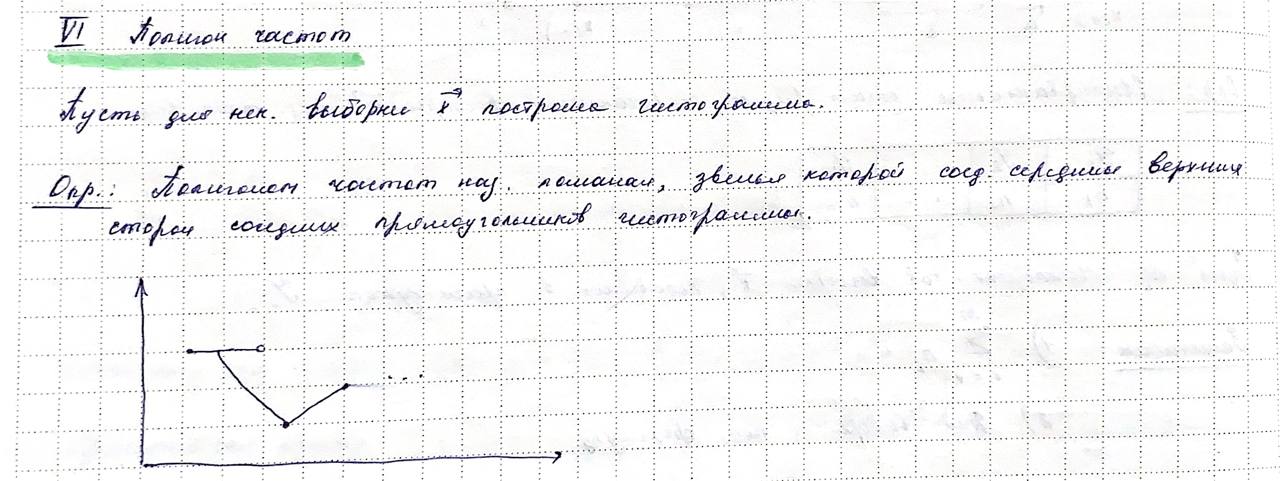 VI Полигон частот
Пусть для нек. выборки x⃗ построена гистограмма.
Опр.: Полигоном частот наз. ломаная, звенья которой соед. середины верхних
сторон соседних прямоугольников гистограммы.
...